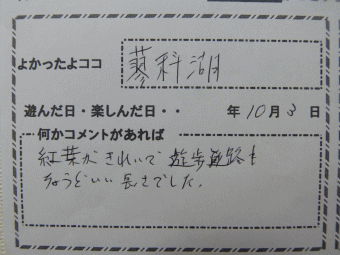 よかったよココ 蓼科湖
遊んだ日・楽しんだ日・・ 年10月3日
何かコメントがあれば
紅葉がきれいで 遊歩道路も
ちょうどいい長さでした。